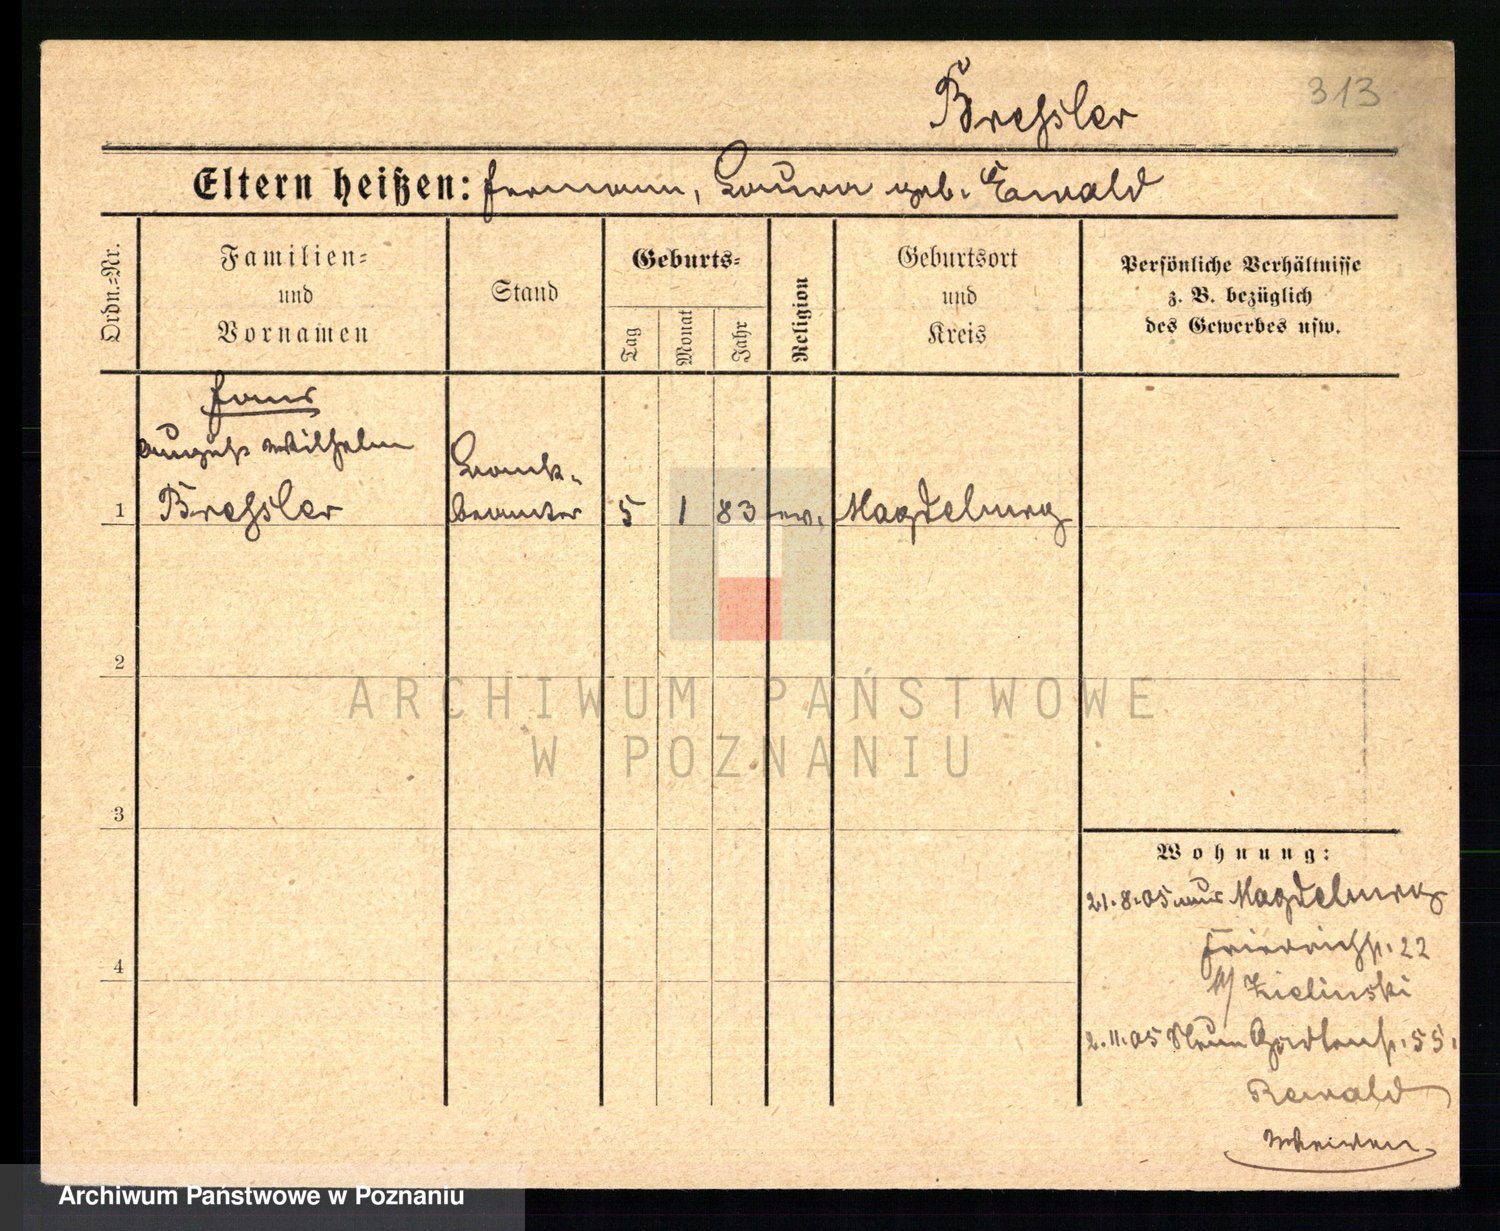 313
Bressler
Eltern heißen: Hermann, Laura geb. Ewald
Ordn.=Nr.
Familien=
und
Vornamen
Stand
Geburts=
Tag
Monat
Jahr
Religion
Geburtsort
und
Kreis
Persönliche Verhältnisse
z. B. bezüglich
des Gewerbes usw.
Hans
August Wilhelm
1 Bressler
Bank-
beamter
5 1 83 ev. Magdeburg
2
3
4
ARCHIWUM PAŃSTWOWE
W POZNANIU
Wohnung:
21.8.05 aus Magdeburg
Friedrichst. 22
b/ Zielinski
2.11.05 Neue Gartenst. 55.
Rewald
Archiwum Państwowe w Poznaniu